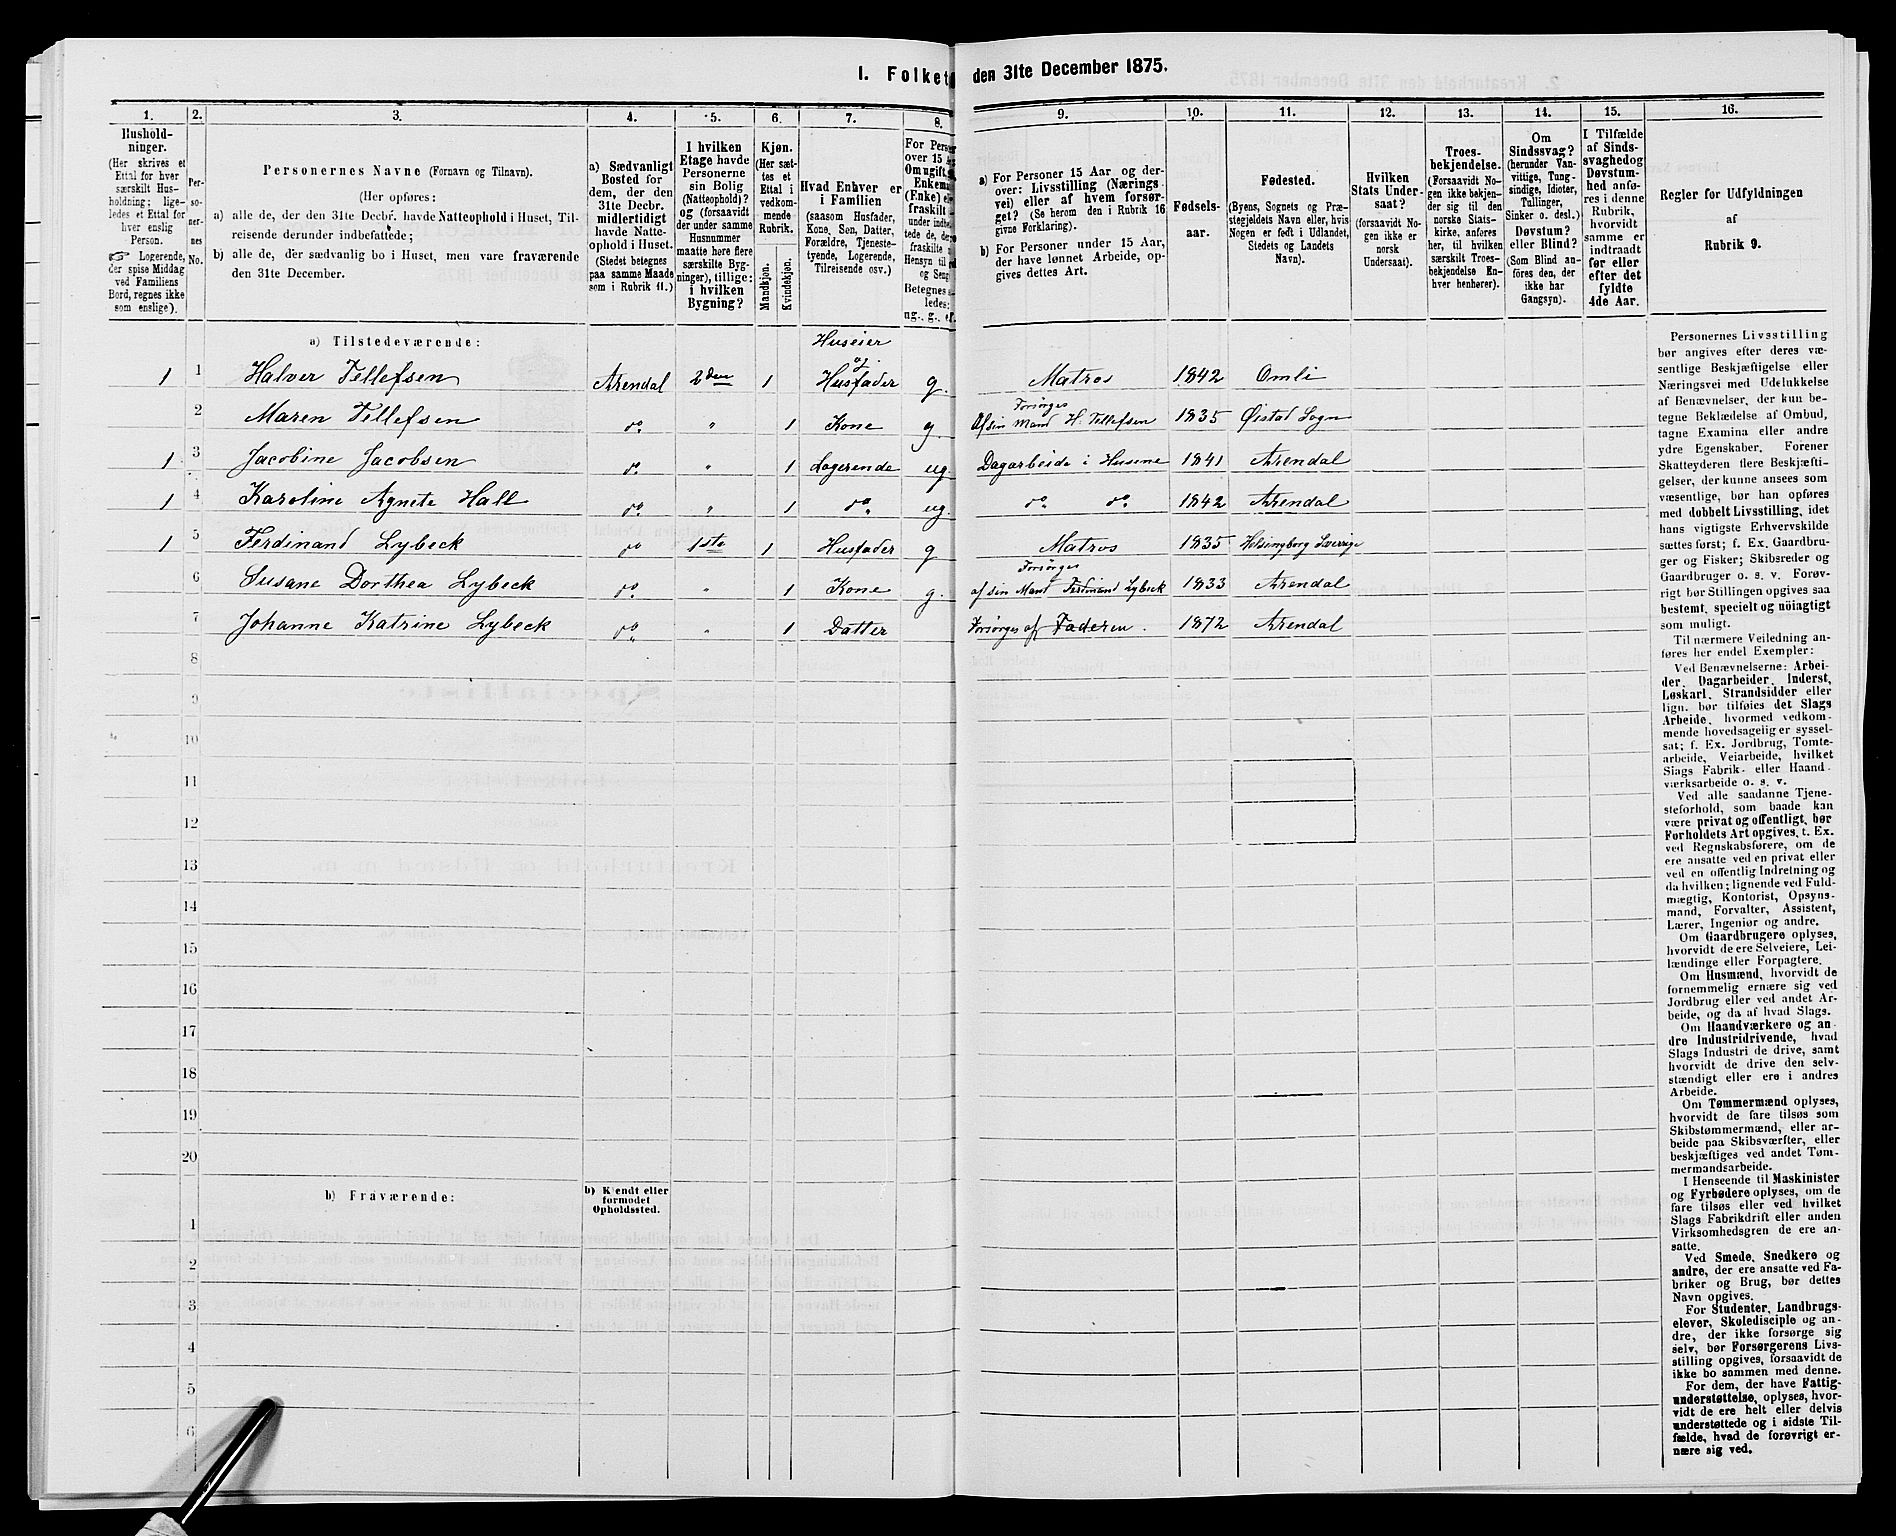 I. Folket den 31te December 1875.
1.
Hushold-
ninger.
(Her skrives et
Ettal for hver
særskilt Hus-
holdning; lige-
ledes et Ettal for
hver enslig
Person.
☞ Logerende,
der spise Middag
ved Familiens
Bord, regnes ikke
som enslige).
2.
Per-
so-
ner-
nes
No.
3.
Personernes Navne (Fornavn og Tilnavn).
(Her opføres:
a) alle de, der den 31te Decbr. havde Natteophold i Huset, Til-
reisende derunder indbefattede;
b) alle de, der sædvanlig bo i Huset, men vare fraværende
den 31te December.
4.
a) Sædvanligt
Bosted for
dem, der den
31te Decbr.
midlertidigt
havde Natte-
ophold i Huset.
(Stedet betegnes
paa samme Maade
som i Rubrik 11.)
5.
I hvilken
Etage havde
Personerne
sin Bolig
(Natteophold)?
og (forsaavidt
der under samme
Husnummer
maatte høre flere
særskilte Byg-
ninger), tillige:
i hvilken
Bygning?
6.
Kjøn.
(Her sæt-
tes et
Ettal i
vedkom-
mende
Rubrik.
Mandkjøn.
Kvindekjøn.
7.
Hvad Enhver er
i Familien
(saasom Husfader,
Kone, Søn, Datter,
Forældre, Tjeneste-
tyende, Logerende,
Tilreisende osv.)
8.
For Perso
over 15 A
Om ugift,
Enkema
(Enke) e
fraskilt
under indbe-
tede de, de
fraskilte
Hensyn til
og Seng
Betegnes s
ledes:
ug., g., e
9.
a) For Personer 15 Aar og der-
over: Livsstilling (Nærings-
vei) eller af hvem forsør-
get? (Se herom den i Rubrik 16
givne Forklaring).
b) For Personer under 15 Aar,
der have lønnet Arbeide, op-
gives dettes Art.
10.
Fødsels-
aar.
11.
Fødested.
(Byens, Sognets og Præ-
stegjeldets Navn eller, hvis
Nogen er født i Udlandet,
Stedets og Landets
Navn).
12.
Hvilken
Stats Under-
saat?
(forsaavidt No-
gen ikke er
norsk
Undersaat).
13.
Troes-
bekjendelse.
(Forsaavidt No-
gen ikke bekjen-
der sig til den
norske Stats-
kirke, anføres
her, til hvilken
særskilt Troes-
bekjendelse En-
hver henhører).
14.
Om
Sindssvag?
(herunder Van-
vittige, Tung-
sindige, Idioter,
Tullinger,
Sinker o. desl.)
Døvstum?
eller Blind?
(Som Blind an-
føres den, der
ikke har
Gangsyn).
15.
I Tilfælde
af Sinds-
svaghed og
Døvstum-
hed anfø-
res i denne
Rubrik,
hvorvidt
samme er
indtraadt
før eller
efter det
fyldte
4de Aar.
16.
Regler for Udfyldningen
af
Rubrik 9.
a) Tilstedeværende:
Huseier
og
1 1 Halvor Tellefsen Arendal 2den 1 Husfader g. Matros 1842 Omli
Forsørges
2 Maren Tellefsen do " 1 Kone g. Af sin Mand H. Tellefsen 1835 Øistad Sogn
1 3 Jacobine Jacobsen do " 1 Logerende ug. Dagarbeide i Husene 1841 Arendal
1 4 Karoline Agnete Hall do " 1 do ug. do do 1842 Arendal
1 5 Ferdinand Lybeck do 1ste 1 Husfader g Matros 1835 Helsingborg Sverrige
Forsørges
6 Susane Dorthea Lybeck do " 1 Kone g. af sin Mand Ferdinand Lybeck 1833 Arendal
7 Johanne Katrine Lybeck do " 1 Datter Forsørges af Faderen. 1872 Arendal
8
9
10
11
12
13
14
15
16
17
18
19
20
b) Fraværende:
b) Kjendt eller
formodet
Opholdssted.
1
2
3
4
5
6
Personernes Livsstilling
bør angives efter deres væ-
sentlige Beskjæftigelse eller
Næringsvei med Udelukkelse
af Benævnelser, der kun be-
tegne Beklædelse af Ombud,
tagne Examina eller andre
ydre Egenskaber. Forener
Skatteyderen flere Beskjæfti-
gelser, der kunne ansees som
væsentlige, bør han opføres
med dobbelt Livsstilling, idet
hans vigtigste Erhvervskilde
sættes først; f. Ex. Gaardbru-
ger og Fisker; Skibsreder og
Gaardbruger o. s. v. Forøv-
rigt bør Stillingen opgives saa
bestemt, specielt og nöiagtigt
som muligt.
Til nærmere Veiledning an-
føres her endel Exempler:
Ved Benævnelserne: Arbei-
der, Dagarbeider, Inderst,
Løskarl, Strandsidder eller
lign. bør tilføies det Slags
Arbeide, hvormed vedkom-
mende hovedsagelig er syssel-
sat; f. Ex. Jordbrug, Tomte-
arbeide, Veiarbeide, hvilket
Slags Fabrik- eller Haand-
værksarbeide o. s. v.
Ved alle saadanne Tjene-
steforhold, som baade kan
være privat og offentligt, bør
Forholdets Art opgives, t. Ex.
ved Regnskabsførere, om de
ere ansatte ved en privat eller
ved en offentlig Indretning og
da hvilken; lignende ved Fuld-
mægtig, Kontorist, Opsyns-
mand, Forvalter, Assistent,
Lærer, Ingeniør og andre.
Om Gaardbrugere oplyses,
hvorvidt de ere Selveiere, Lei-
lændinge eller Forpagtere.
Om Husmænd, hvorvidt de
fornemmelig ernære sig ved
Jordbrug eller ved andet Ar-
beide, og da af hvad Slags.
Om Haandværkere og an-
dre Industridrivende, hvad
Slags Industri de drive, samt
hvorvidt de drive den selv-
stændigt eller ere i andres
Arbeide.
Om Tømmermænd oplyses,
hvorvidt de fare tilsøs som
Skibstømmermænd, eller ar-
beide paa Skibsværfter, eller
beskjæftiges ved andet Tøm-
mermandsarbeide.
I Henseende til Maskinister
og Fyrbødere oplyses, om de
fare tilsøs eller ved hvilket
Slags Fabrikdrift eller anden
Virksomhedsgren de ere an-
satte.
Ved Smede, Snedkere og
andre, der ere ansatte ved Fa-
briker og Brug, bør dettes
Navn opgives.
For Studenter, Landbrugs-
elever, Skoledisciple og an-
dre, der ikke forsørge sig
selv, bør Forsørgerens Livs-
stilling opgives, forsaavidt de
ikke bo sammen med denne.
For dem, der have Fattig-
understøttelse, oplyses, hvor-
vidt de ere helt eller delvis
understøttede og i sidste Til-
fælde, hvad de forøvrigt er-
nære sig ved.